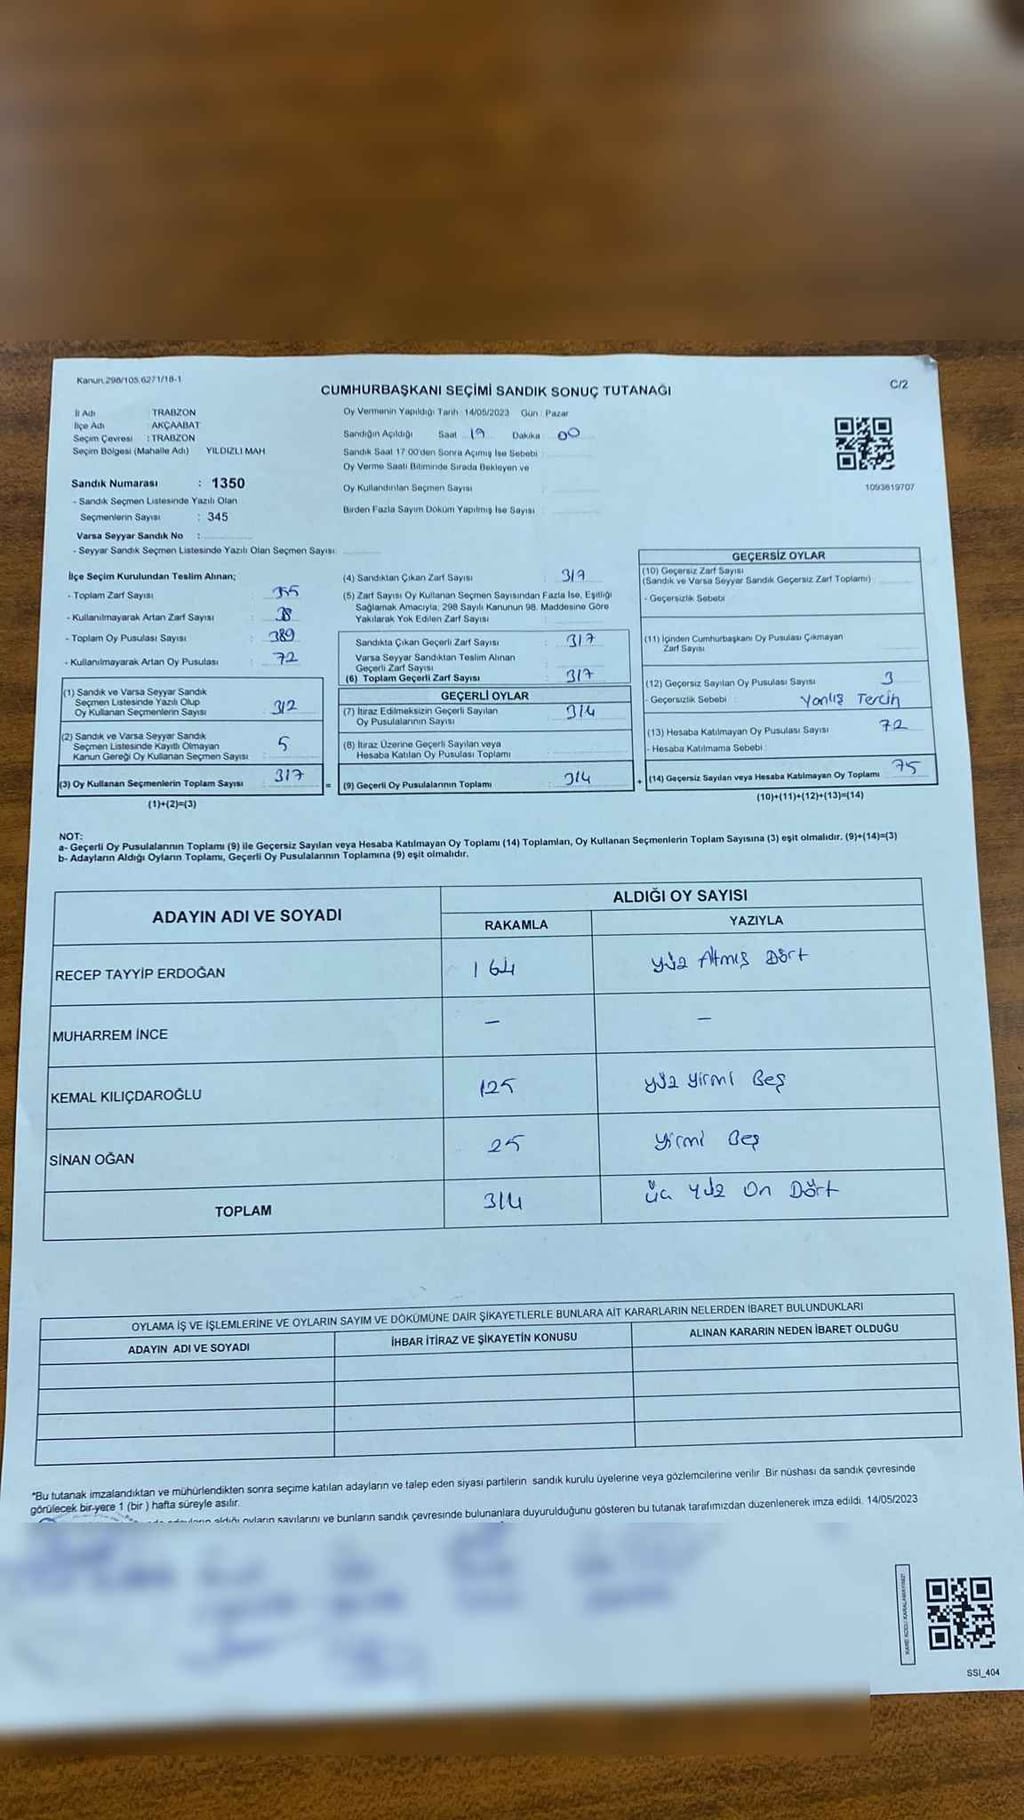 Kanun.298/105.6271/18-1
CUMHURBAŞKANI SEÇİMİ SANDIK SONUÇ TUTANAĞI
C/2
İl Adı TRABZON
İlçe Adı AKÇAABAT
Seçim Çevresi : TRABZON
Seçim Bölgesi (Mahalle Adı) YILDIZLI MAH
Sandık Numarası : 1350
- Sandık Seçmen Listesinde Yazılı Olan
Seçmenlerin Sayısı : 345
Varsa Seyyar Sandık No :
- Seyyar Sandık Seçmen Listesinde Yazılı Olan Seçmen Sayısı:
Oy Vermenin Yapıldığı Tarih 14/05/2023 Gün : Pazar
Sandığın Açıldığı Saat 19 Dakika 00
Sandık Saat 17 00'den Sonra Açımış İse Sebebi
Oy Verme Saati Bitiminde Sırada Bekleyen ve
Oy Kullandırılan Seçmen Sayısı
Birden Fazla Sayım Döküm Yapılmış İse Sayısı
1093619707
İlçe Seçim Kurulundan Teslim Alınan;
- Toplam Zarf Sayısı : 355
- Kullanılmayarak Artan Zarf Sayısı : 38
- Toplam Oy Pusulası Sayısı : 389
- Kullanılmayarak Artan Oy Pusulası : 72
(1) Sandık ve Varsa Seyyar Sandık
Seçmen Listesinde Yazılı Olup
Oy Kullanan Seçmenlerin Sayısı 312
(2) Sandık ve Varsa Seyyar Sandık
Seçmen Listesinde Kayıtlı Olmayan
Kanun Gereği Oy Kullanan Seçmen Sayısı 5
(3) Oy Kullanan Seçmenlerin Toplam Sayısı 317
(1)+(2)=(3)
(4) Sandıktan Çıkan Zarf Sayısı : 317
(5) Zarf Sayısı Oy Kullanan Seçmen Sayısından Fazla İse, Eşitliği
Sağlamak Amacıyla, 298 Sayılı Kanunun 98. Maddesine Göre
Yakılarak Yok Edilen Zarf Sayısı
Sandıkta Çıkan Geçerli Zarf Sayısı : 317
Varsa Seyyar Sandıktan Teslim Alınan
Geçerli Zarf Sayısı
(6) Toplam Geçerli Zarf Sayısı : 317
GEÇERLİ OYLAR
(7) İtiraz Edilmeksizin Geçerli Sayılan
Oy Pusulalarının Sayısı : 314
(8) İtiraz Üzerine Geçerli Sayılan veya
Hesaba Katılan Oy Pusulası Toplamı
= (9) Geçerli Oy Pusulalarının Toplamı 314
GEÇERSİZ OYLAR
(10) Geçersiz Zarf Sayısı
(Sandık ve Varsa Seyyar Sandık Geçersiz Zarf Toplamı)
- Geçersizlik Sebebi
(11) İçinden Cumhurbaşkanı Oy Pusulası Çıkmayan
Zarf Sayısı
(12) Geçersiz Sayılan Oy Pusulası Sayısı 3
- Geçersizlik Sebebi : Yanlış Tercih
(13) Hesaba Katılmayan Oy Pusulası Sayısı 72
- Hesaba Katılmama Sebebi
+ (14) Geçersiz Sayılan veya Hesaba Katılmayan Oy Toplamı 75
(10)+(11)+(12)+(13)=(14)
NOT:
a- Geçerli Oy Pusulalarının Toplamı (9) ile Geçersiz Sayılan veya Hesaba Katılmayan Oy Toplamı (14) Toplamları, Oy Kullanan Seçmenlerin Toplam Sayısına (3) eşit olmalıdır. (9)+(14)=(3)
b- Adayların Aldığı Oyların Toplamı, Geçerli Oy Pusulalarının Toplamına (9) eşit olmalıdır.
ADAYIN ADI VE SOYADI
ALDIĞI OY SAYISI
RAKAMLA YAZIYLA
RECEP TAYYİP ERDOĞAN 164 Yüz Altmış Dört
MUHARREM İNCE – –
KEMAL KILIÇDAROĞLU 125 Yüz Yirmi Beş
SİNAN OĞAN 25 Yirmi Beş
TOPLAM 314 Üç Yüz On Dört
OYLAMA İŞ VE İŞLEMLERİNE VE OYLARIN SAYIM VE DÖKÜMÜNE DAİR ŞİKAYETLERLE BUNLARA AİT KARARLARIN NELERDEN İBARET BULUNDUKLARI
ADAYIN ADI VE SOYADI İHBAR İTİRAZ VE ŞİKAYETİN KONUSU ALINAN KARARIN NEDEN İBARET OLDUĞU
*Bu tutanak imzalandıktan ve mühürlendikten sonra seçime katılan adayların ve talep eden siyasi partilerin sandık kurulu üyelerine veya gözlemcilerine verilir. Bir nüshası da sandık çevresinde
görülecek bir yere 1 (bir ) hafta süreyle asılır.
aldığı oyların sayılarını ve bunların sandık çevresinde bulunanlara duyurulduğunu gösteren bu tutanak tarafımızdan düzenlenerek imza edildi. 14/05/2023
SSI_404